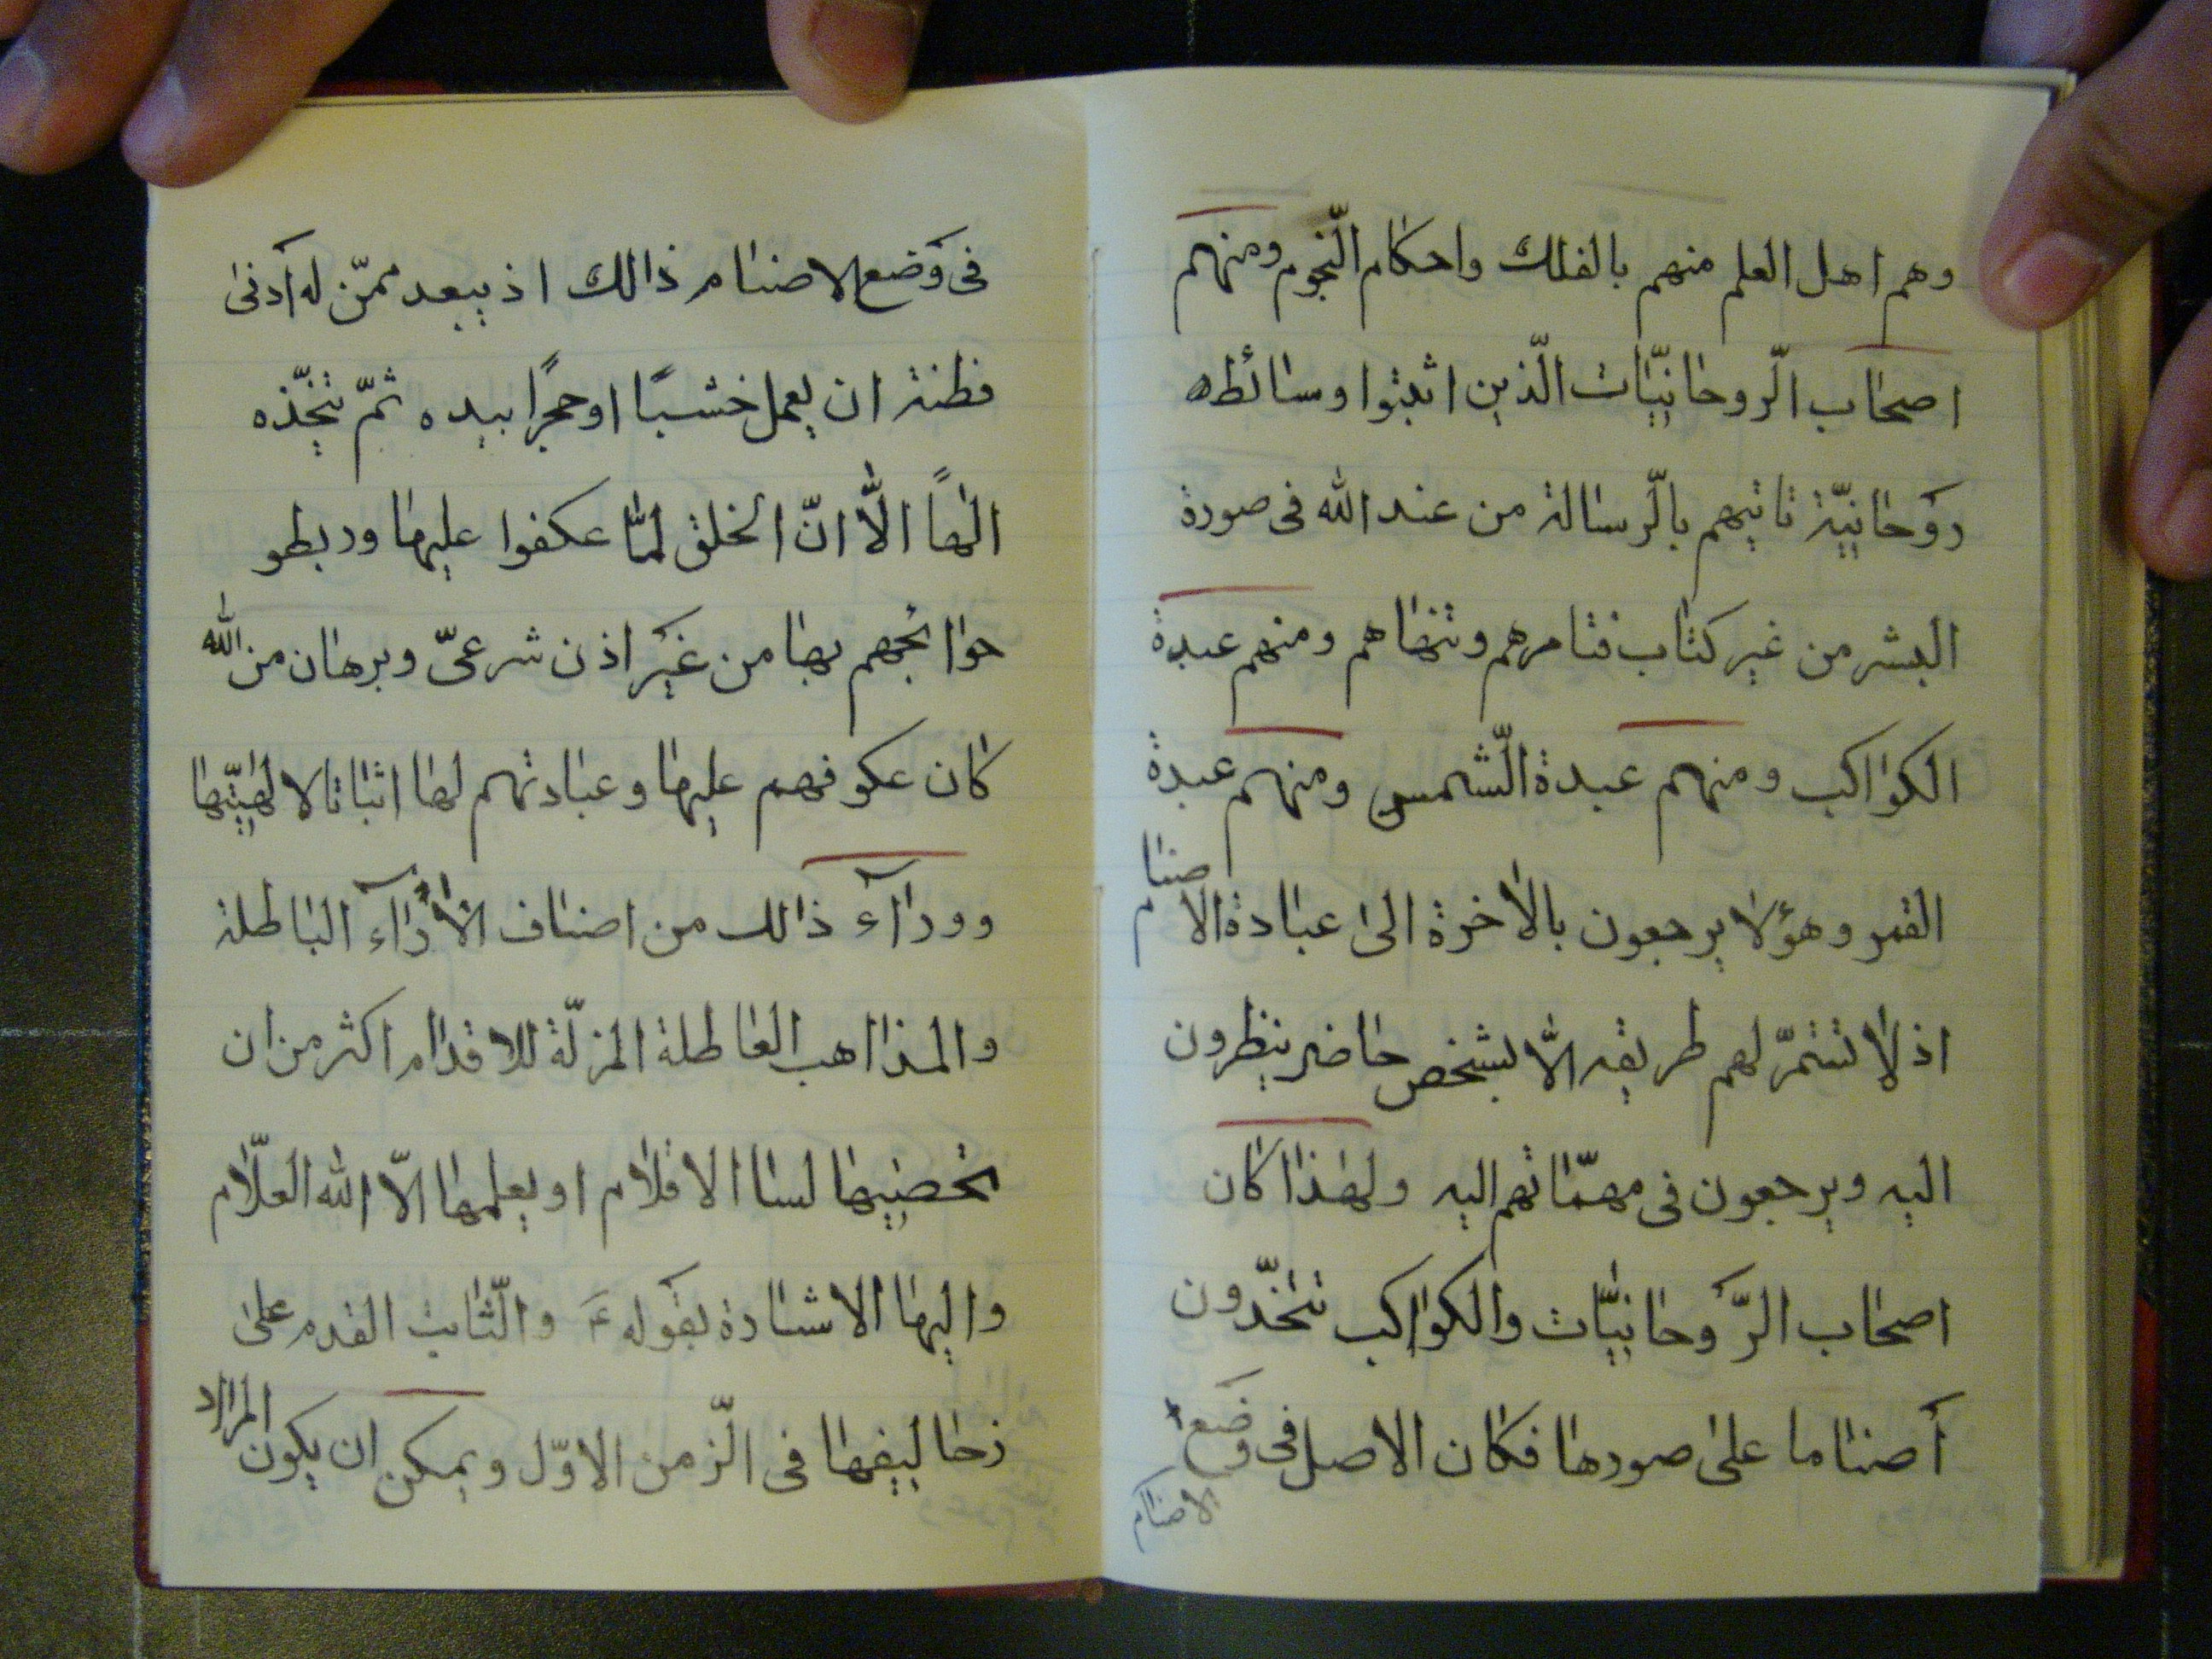 وهم اهل العلم منهم بالفلك واحكام النّجوم ومنهم
اصحاب الرّوحانيّات الّذين اثبتوا وسائط
روَحانيّة تاتيهم بالرّسالة من عند الله فى صورة
البشر من غير كتاب فتامرهم وتنهاهم ومنهم عبدة
الكواكب ومنهم عبدة الشّمس ومنهم عبدة
القمر وهؤلا يرجعون بالاخرة الى عبادة الاصنام
اذ لا تستمرّ لهم طريقه الّا بشخص حاضر ينظرون
اليه ويرجعون فى مهمّاتهم اليه ولهذا كان
اصحاب الرّوَحانيّات والكواكب تتخّذون
أصناما على صورها فكان الاصل فى وضع
الاصنام
فى وَضع الاصنام ذالك اذ يبعد ممّن له أدنى
فطنة ان يعمل خشبًا او حجرًا بيده ثمّ يتخّذه
الهاً الّا انّ الخلق لمّا عكفوا عليها وربطو
حوائجهم بها من غَير اذن شرعىّ وبرهان من الله
كان عكوفهم عليها وعبادتهم لها اثباتا لالهيّتها
وورآء ذالك من اصناف الأرآء الباطلة
والمذاهب العاطلة المزلّة للاقدام اكثر من ان
تحصيها لسا الاقلام او يعلمها الّا الله العلّام
واليها الاشارة بقَوله ع والثّابت القدم على
زحاليفها فى الزّمن الاوّل ويمكن ان يكون المراد